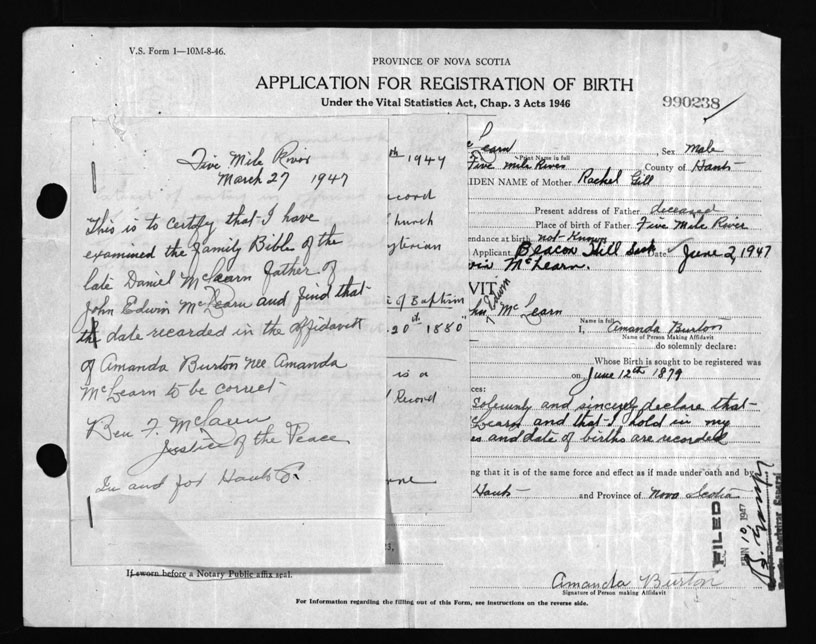 V.S. Form 1—10M-8-46.
PROVINCE OF NOVA SCOTIA
APPLICATION FOR REGISTRATION OF BIRTH
Under the Vital Statistics Act, Chap. 3 Acts 1946
990238
Five Mile River
March 27 1947
This is to certify that I have
examined the family Bible of the
late Daniel McLearn father of
John Edwin McLearn and find that
the date recorded in the affidavit
of Amanda Burton nee Amanda
McLearn to be correct
Ben F. McLearn
Justice of the Peace
In and for Hants Co.
th 1947
ecord
hurch
yterian
of Baptism
20th 1880
is a
Record
Learn , Sex Male
Print Name in full
Five Mile River County of Hants
IDEN NAME of Mother Rachel Gill
Present address of Father deceased
Place of birth of Father Five Mile River
endance at birth not known
Applicant Beacon Hill Sask Date June 2, 1947
win McLearn.
VIT
hn Edwin McLearn
Name in full
I, Amanda Burton
Name of Person Making Affidavit
do solemnly declare:
Whose Birth is sought to be registered was
on June 12th 1879
ces:
Solemnly and sincerely declare that
Learn and that I hold in my
es and date of births are recorded
ng that it is of the same force and effect as if made under oath and by
Hants and Province of Nova Scotia
FILED
JUN 10 1947
Deputy Registrar General
If sworn before a Notary Public affix seal.
Amanda Burton
Signature of Person making Affidavit
For Information regarding the filling out of this Form, see instructions on the reverse side.